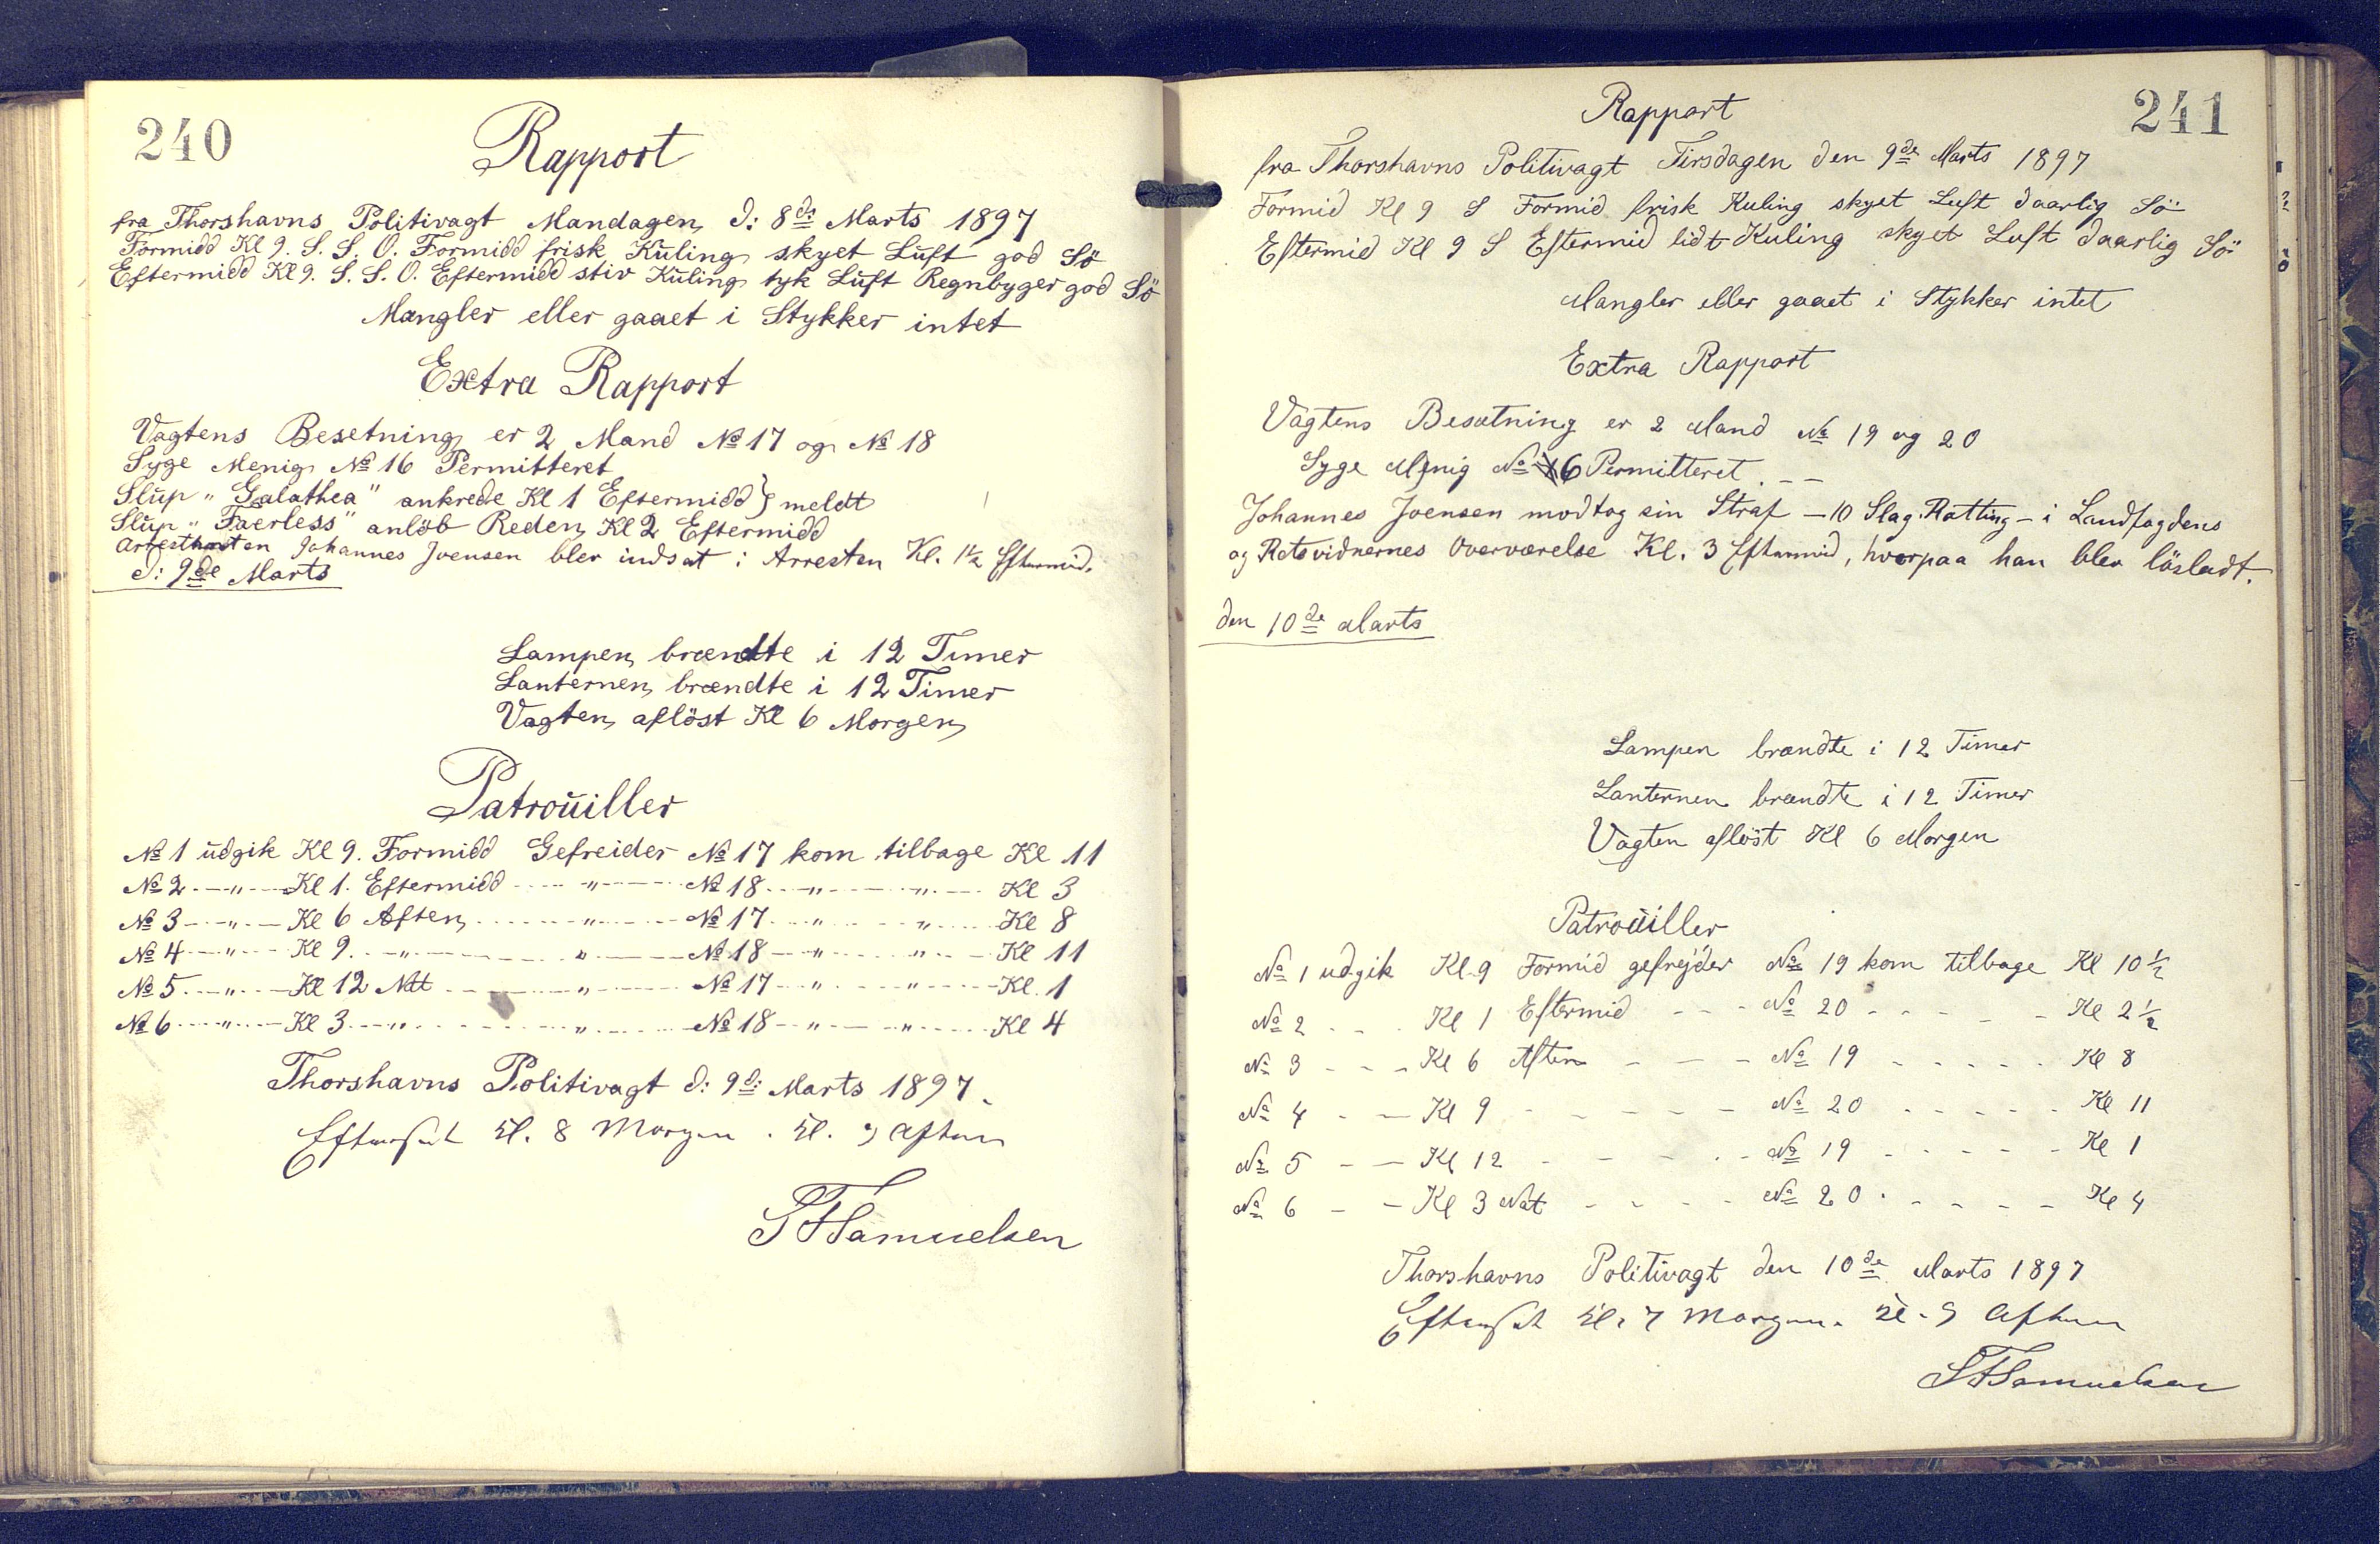 240
Rapport
fra Thorshavns Politivagt Mandagen d: 8de Marts 1897
Formidd Kl 9. S. S. O. Formidd frisk Kuling skyet Luft god Sö
Eftermidd Kl 9. S. S. O. Eftermidd stiv Kuling tyk Luft Regnbyger god Sö
Mangler eller gaaet i Stykker intet
Extra Rapport
Vagtens Besetning er 2 Mand No 17 og No 18
Syge Menig No 16 Permitteret
Slup „Galathea" ankrede Kl 1 Eftermidd } meldt
Slup „Faerless" anlöb Reden Kl 2 Eftermidd
Johannes Joensen blev indsat i Arresten Kl. 1½ Eftermid.
d: 9de Marts
Lampen brændte i 12 Timer
Lanternen brændte i 12 Timer
Vagten aflöst Kl 6 Morgen
Patrouiller
No 1 udgik Kl 9. Formidd Gefreider No 17 kom tilbage Kl 11
No 2 - „ - Kl 1. Eftermidd - „ - No 18 - „ - „ - Kl 3
No 3 - „ - Kl 6 Aften - „ - No 17 - „ - „ - Kl 8
No 4 - „ - Kl 9. - „ - „ - No 18 - „ - „ - Kl 11
No 5 - „ - Kl 12 Natt - „ - No 17 - „ - „ - Kl. 1
No 6 - „ - Kl 3 - „ - „ - No 18 - „ - „ - Kl 4
Thorshavns Politivagt d: 9d: Marts 1897.
Efterset Kl. 8 Morgen . Kl. 9 Aften
Samuelsen
241
Rapport
fra Thorshavns Politivagt Tirsdagen den 9de Marts 1897
Formid Kl 9 S Formid frisk Kuling skyet Luft daarlig Sö
Eftermid Kl 9 S Eftermid lidt Kuling skyet Luft daarlig Sö
Mangler eller gaaet i Stykker intet
Extra Rapport
Vagtens Besætning er 2 Mand No 19 og 20
Syge Menig No 6 Permitteret. - -
Johannes Joensen modtog sin Straf - 10 Slag Ratting - i Landfogdens
og Retsvidnernes Overværelse Kl. 3 Eftermid, hvorpaa han blev lösladt.
den 10de Marts
Lampen brændte i 12 Timer
Lanternen brændte i 12 Timer
Vagten aflöst Kl 6 Morgen
Patrouiller
No 1 udgik Kl. 9 Formid gefrejder No 19 kom tilbage Kl 10½
No 2 - - Kl 1 Eftermid - - - No 20 - - - - - Kl 2½
No 3 - - - Kl 6 Aften - - - No 19 - - - - - Kl 8
No 4 - - Kl 9 - - - - - No 20 - - - - - Kl 11
No 5 - - Kl 12 - - - - - No 19 - - - - - Kl 1
No 6 - - Kl 3 Nat - - - - No 20 - - - - - Kl 4
Thorshavns Politivagt den 10de Marts 1897
Efterset Kl. 7 Morgen. Kl. 9 Aften
Samuelsen